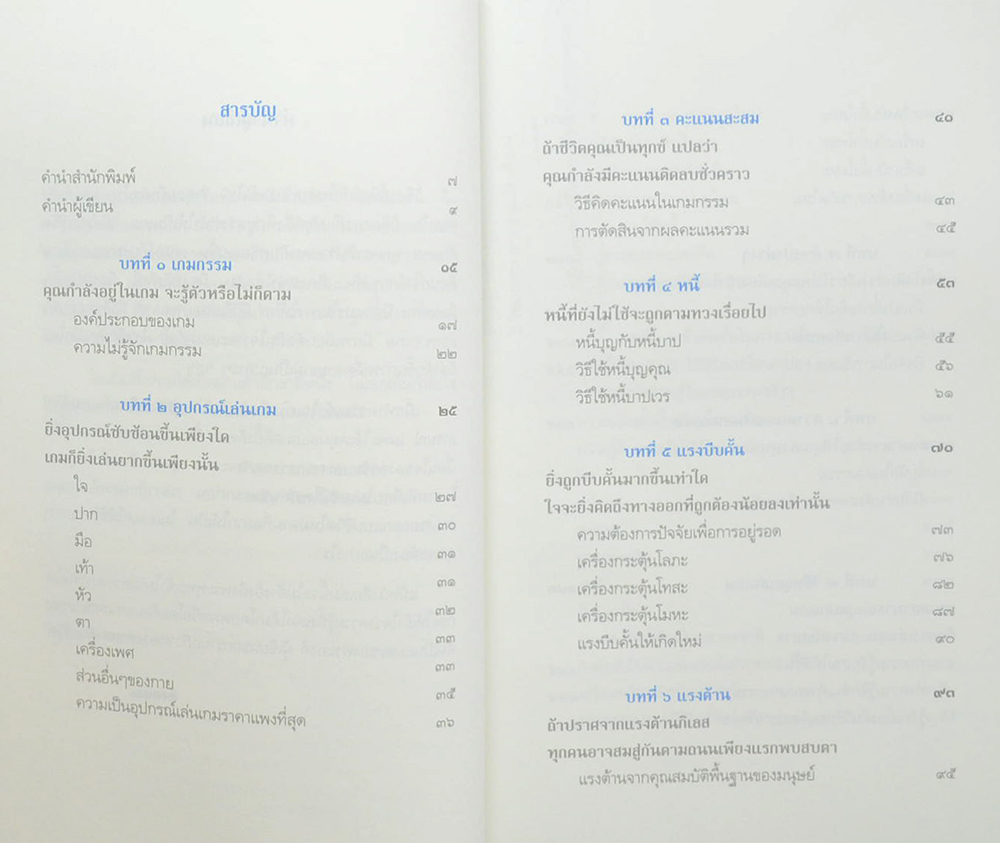 สารบัญ
คำนำสำนักพิมพ์ ๗
คำนำผู้เขียน ๙
บทที่ ๑ เกมกรรม ๑๕
คุณกำลังอยู่ในเกม จะรู้ตัวหรือไม่ก็ตาม
องค์ประกอบของเกม ๑๗
ความไม่รู้จักเกมกรรม ๒๒
บทที่ ๒ อุปกรณ์เล่นเกม ๒๕
ยิ่งอุปกรณ์ซับซ้อนขึ้นเพียงใด
เกมก็ยิ่งเล่นยากขึ้นเพียงนั้น
ใจ ๒๗
ปาก ๓๐
มือ ๓๑
เท้า ๓๑
หัว ๓๒
ตา ๓๓
เครื่องเพศ ๓๓
ส่วนอื่นๆของกาย ๓๕
ความเป็นอุปกรณ์เล่นเกมราคาแพงที่สุด ๓๖
บทที่ ๓ คะแนนสะสม ๔๐
ถ้าชีวิตคุณเป็นทุกข์ แปลว่า
คุณกำลังมีคะแนนติดลบชั่วคราว
วิธีคิดคะแนนในเกมกรรม ๔๓
การตัดสินจากผลคะแนนรวม ๔๕
บทที่ ๔ หนี้ ๕๓
หนี้ที่ยังไม่ใช้จะถูกตามทวงเรื่อยไป
หนี้บุญกับหนี้บาป ๕๕
วิธีใช้หนี้บุญคุณ ๕๖
วิธีใช้หนี้บาปเวร ๖๑
บทที่ ๕ แรงบีบคั้น ๗๐
ยิ่งถูกบีบคั้นมากขึ้นเท่าใด
ใจจะยิ่งคิดถึงทางออกที่ถูกต้องน้อยลงเท่านั้น
ความต้องการปัจจัยเพื่อการอยู่รอด ๗๓
เครื่องกระตุ้นโลภะ ๗๖
เครื่องกระตุ้นโทสะ ๘๒
เครื่องกระตุ้นโมหะ ๘๗
แรงบีบคั้นให้เกิดใหม่ ๙๐
บทที่ ๖ แรงต้าน ๙๓
ถ้าปราศจากแรงต้านกิเลส
ทุกคนอาจสมสู่กันตามถนนเพียงแรกพบสบตา
แรงต้านจากคุณสมบัติพื้นฐานของมนุษย์ ๙๕